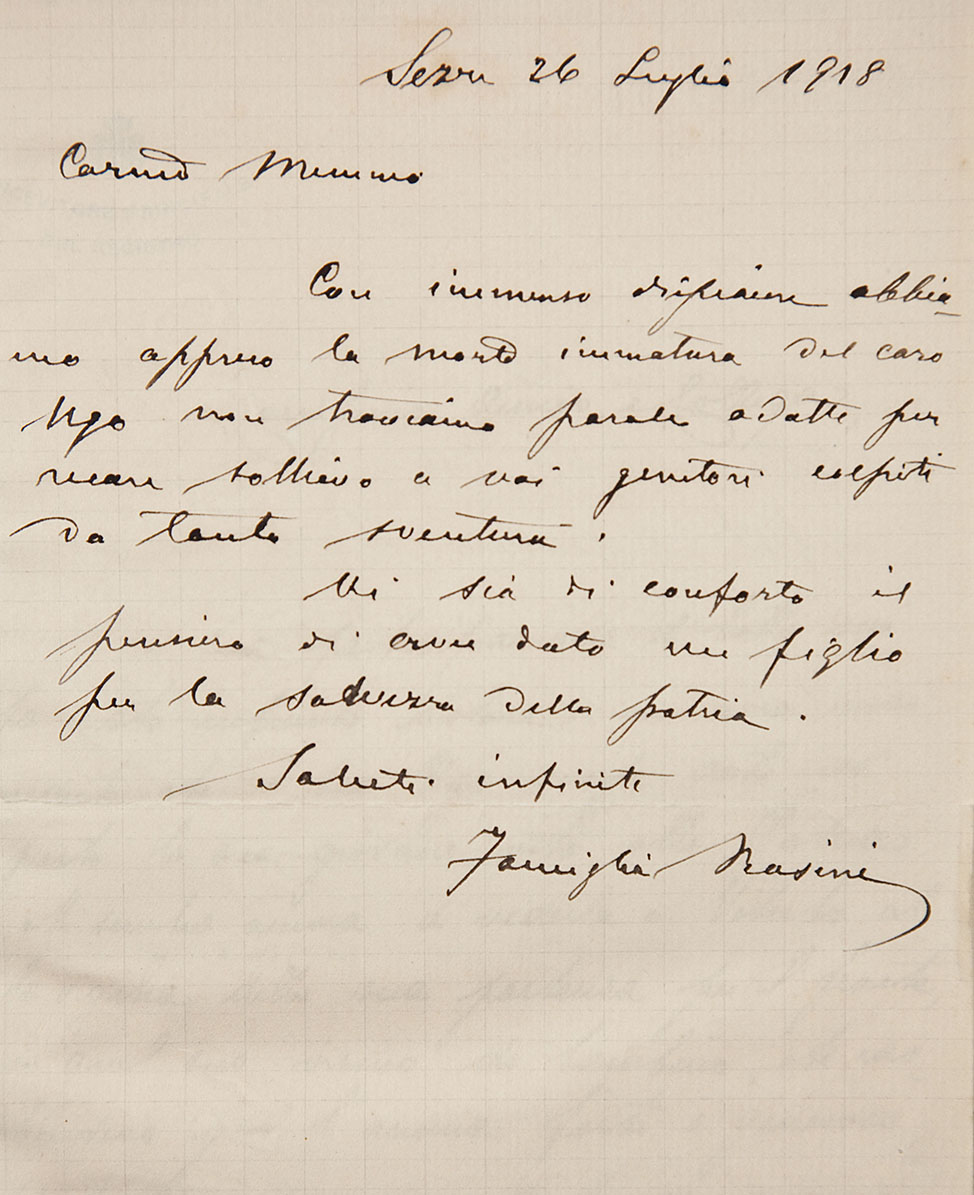 Sezze 26 Luglio 1918
Carmo Memmo
Con immenso dispiacere abbia-
mo appreso la morte immatura del caro
Ugo non troviamo parole adatte per
recare sollievo a voi genitori colpiti
da tanta sventura.
Vi sia di conforto il
pensiero di aver dato un figlio
per la salvezza della patria.
Saluti infiniti
Famiglia Rasini